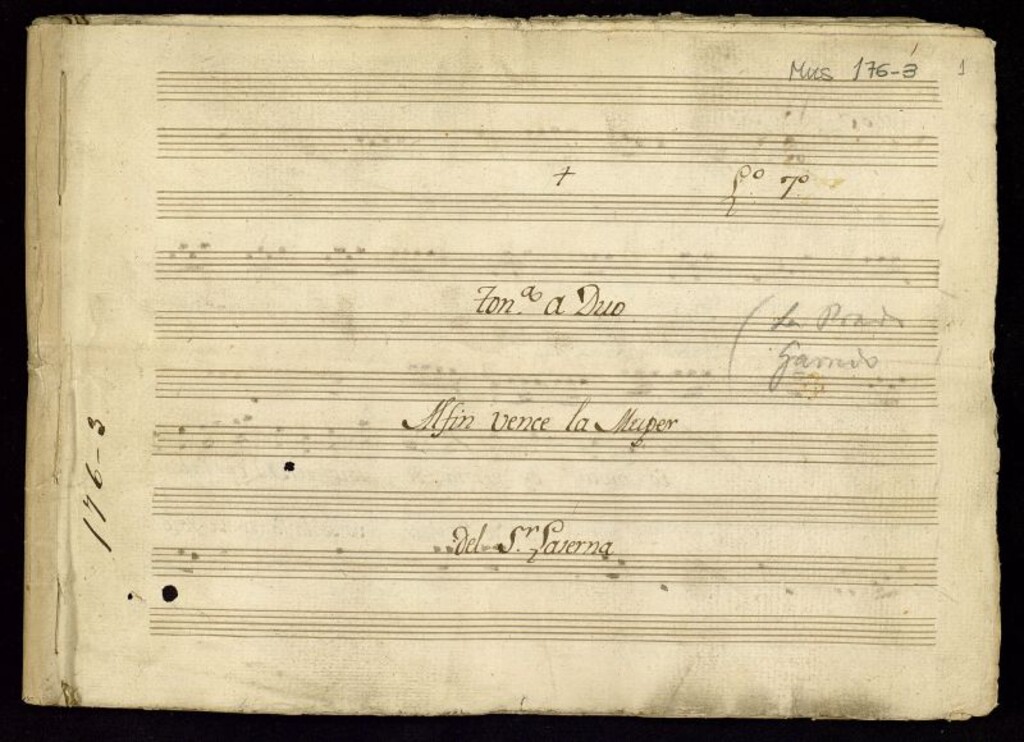 Mus 176-3
1
+
L.º 7º
Ton.ª a Duo
Garrido
Alfin vence la Muger
del S.r Laserna
176-3